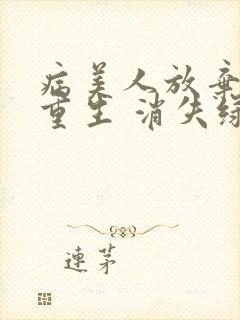 病美人放弃
重生 消失绿
連茅